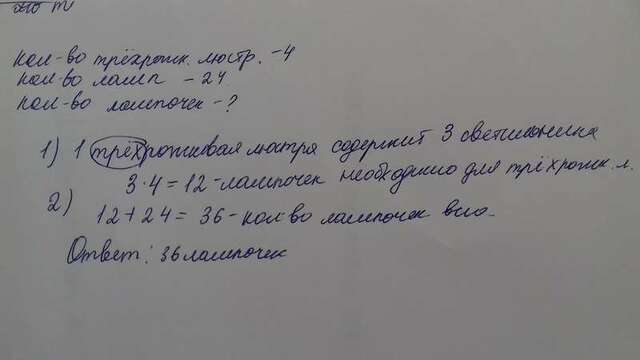 кол-во трёхрожк. люстр. -4
кол-во ламп - 24.
кол-во лампочек - ?
1) 1 трёхрожковая люстра содержит 3 светильника
3·4=12 - лампочек необходимо для трёхрожк. л.
2)
12+24= 36 - кол-во лампочек всго.
Ответ: 36 лампочек